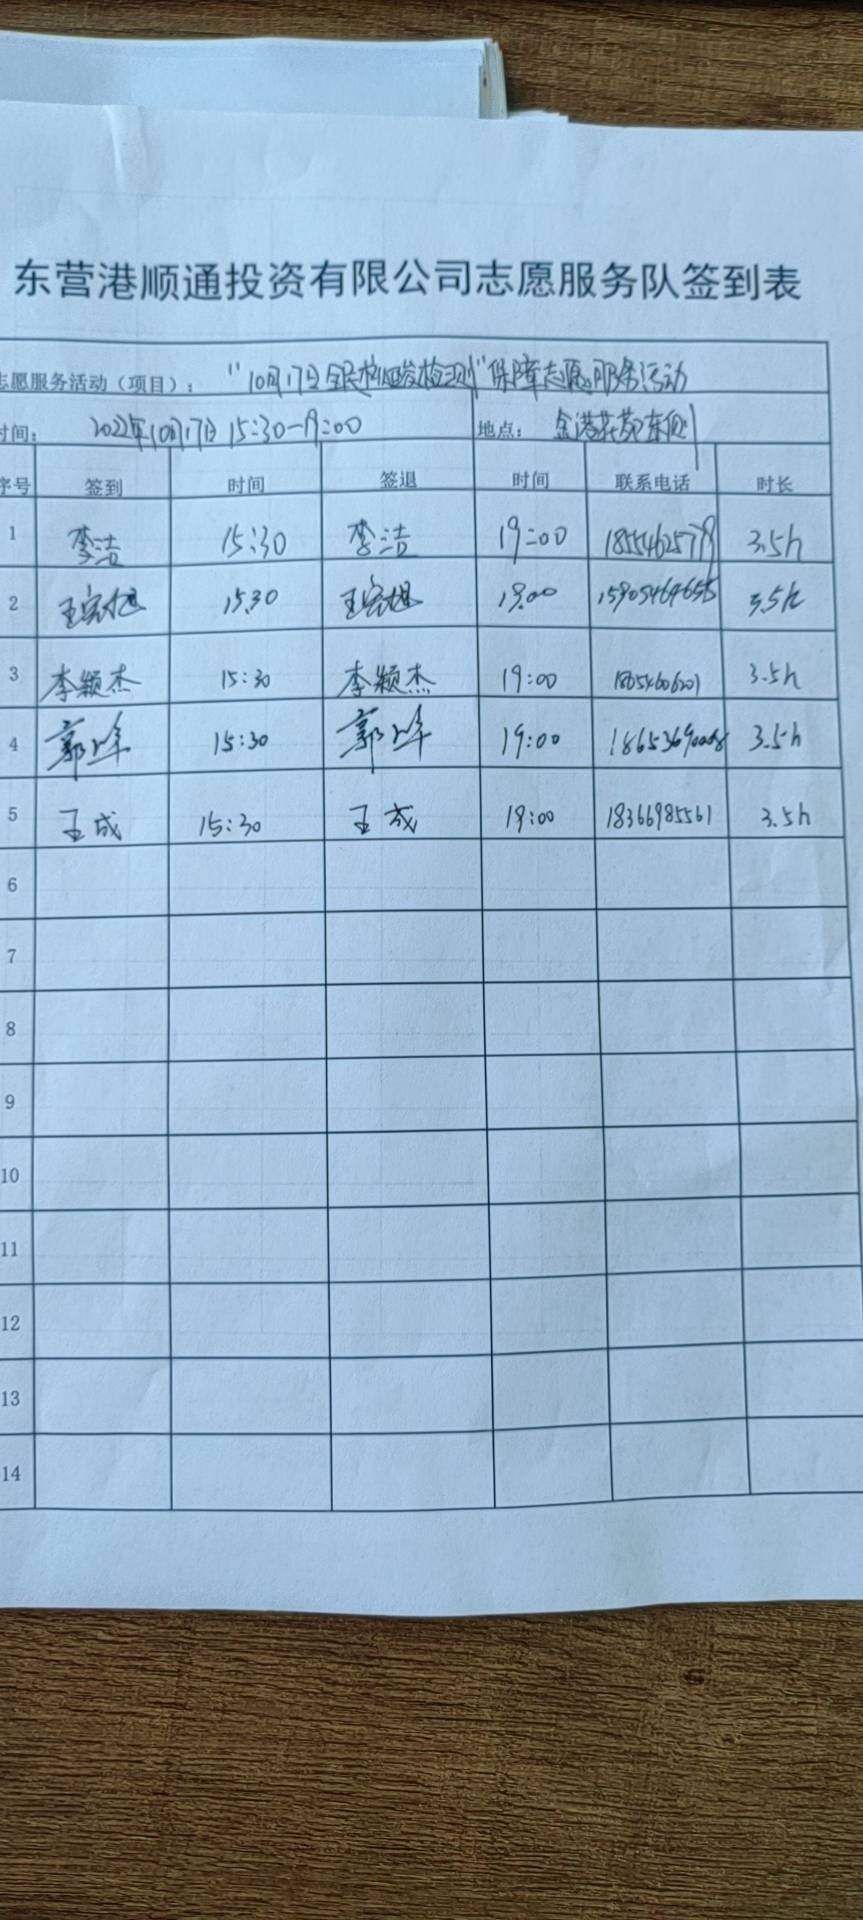 东营港顺通投资有限公司志愿服务队签到表
志愿服务活动（项目）： “10月17日全民核酸检测”保障志愿服务活动
时间： 2022年10月17日 15:30-19:00 地点： 金港花苑东侧
序号 签到 时间 签退 时间 联系电话 时长
1 李洁 15:30 李洁 19:00 3.5h
2 15:30 19:00 15905464656 3.5h
3 李颖杰 15:30 李颖杰 19:00 18654606201 3.5h
4 郭峰 15:30 郭峰 19:00 3.5h
5 王成 15:30 王成 19:00 18366985561 3.5h
6
7
8
9
10
11
12
13
14